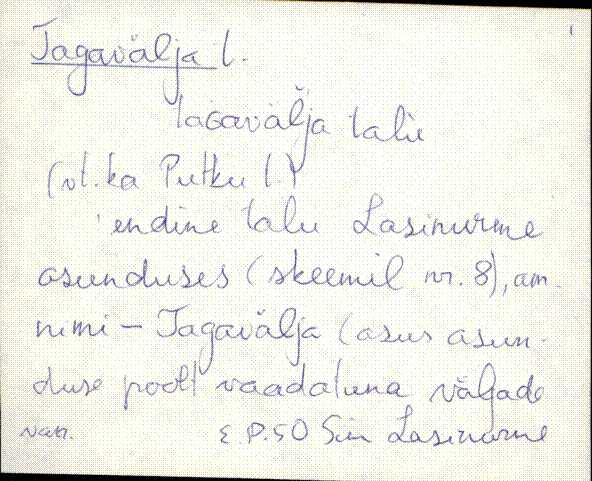 Tagavälja t.
taGavälja talu
(vt. ka Putku t.)
endine talu Lasinurme
asunduses (skeemil nr. 8), am.
nimi – Tagavälja (asus asun-
duse poolt vaadatuna väljade
E.P. 50 Sim Lasinurme